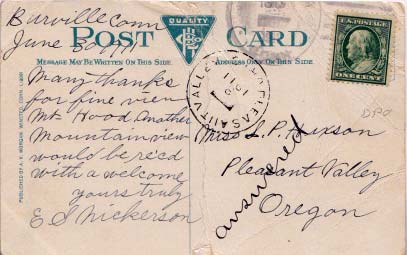 Burville Conn
June 30 1911
POST CARD
QUALITY
MESSAGE MAY BE WRITTEN ON THIS SIDE
ADDRESS ONLY ON THIS SIDE
U.S. POSTAGE
ONE CENT
Many thanks
for fine view
Mt. Hood Another
Mountain view
would be rec'd
with a welcome
yours truly
E S Nickerson
PLEASANT VALLEY
1911
DPO
Miss L. P. Hixson
Pleasant Valley
Oregon
answered
PUBLISHED BY A. K. MORGAN WINSTED, CONN.